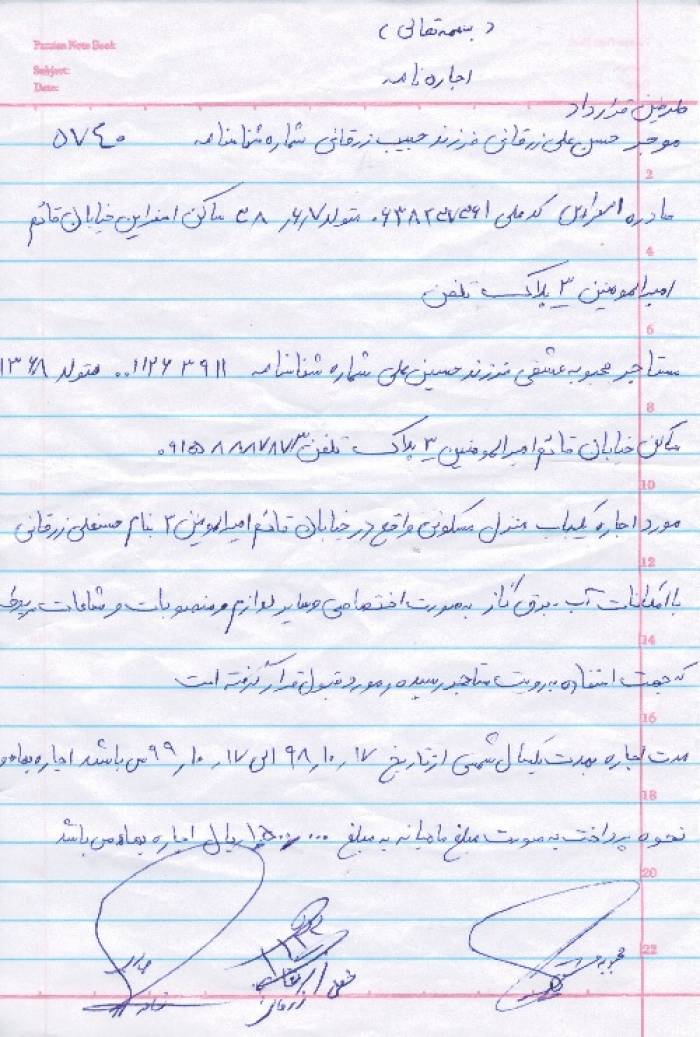 (بسمه تعالی)
Parsian Note Book
اجاره نامه
Subject:
Date:
طرفین قرارداد
موجر حسن علی زرقانی فرزند حبیب زرقانی شماره شناسنامه ۵۷۴۰
2
صادره اسفراین کد ملی متولد ساکن اسفراین خیابان قائم
4
امیرالمومنین ۳ پلاک تلفن
6
مستاجر محبوبه عشقی فرزند حسین علی شماره شناسنامه ۰۰۱۱۲۶۳۹۱۱ متولد ۱۳۶۸
8
ساکن خیابان قائم امیرالمومنین ۳ پلاک تلفن
10
مورد اجاره یکباب منزل مسکونی واقع در خیابان قائم امیرالمومنین ۳ بنام حسنعلی زرقانی
12
با امکانات آب - برق گاز بصورت اختصاصی و سایر لوازم و منصوبات و مشاعات مربوطه
14
که جهت استفاده به رویت مستاجر رسیده و مورد قبول قرار گرفته است
16
مدت اجاره بمدت یکسال شمسی از تاریخ ۹۸٫۱۰٫۱۷ الی ۹۹٫۱۰٫۱۷ می باشد اجاره بهاء و
18
نحوه پرداخت به صورت مبلغ ماهیانه به مبلغ ریال اجاره بهاء می باشد
20
22
محبوبه
زرقانی